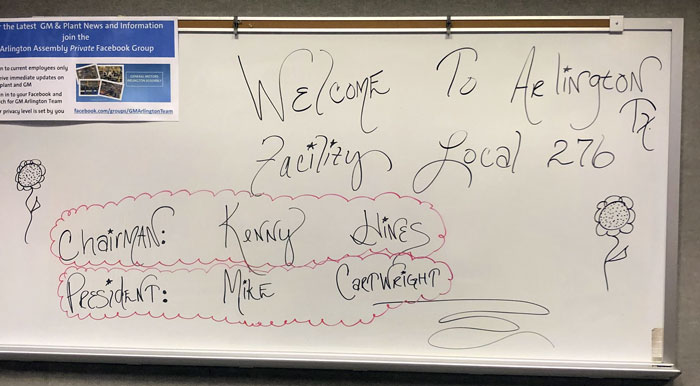 r the Latest GM & Plant News and Information
join the
Arlington Assembly Private Facebook Group
n to current employees only
eive immediate updates on
plant and GM
n in to your Facebook and
ch for GM Arlington Team
r privacy level is set by you
GENERAL MOTORS
ARLINGTON ASSEMBLY
facebook.com/groups/GMArlingtonTeam
Welcome To Arlington
Tx
Facility Local 276
Chairman: Kenny Hines
President: Mike Cartwright